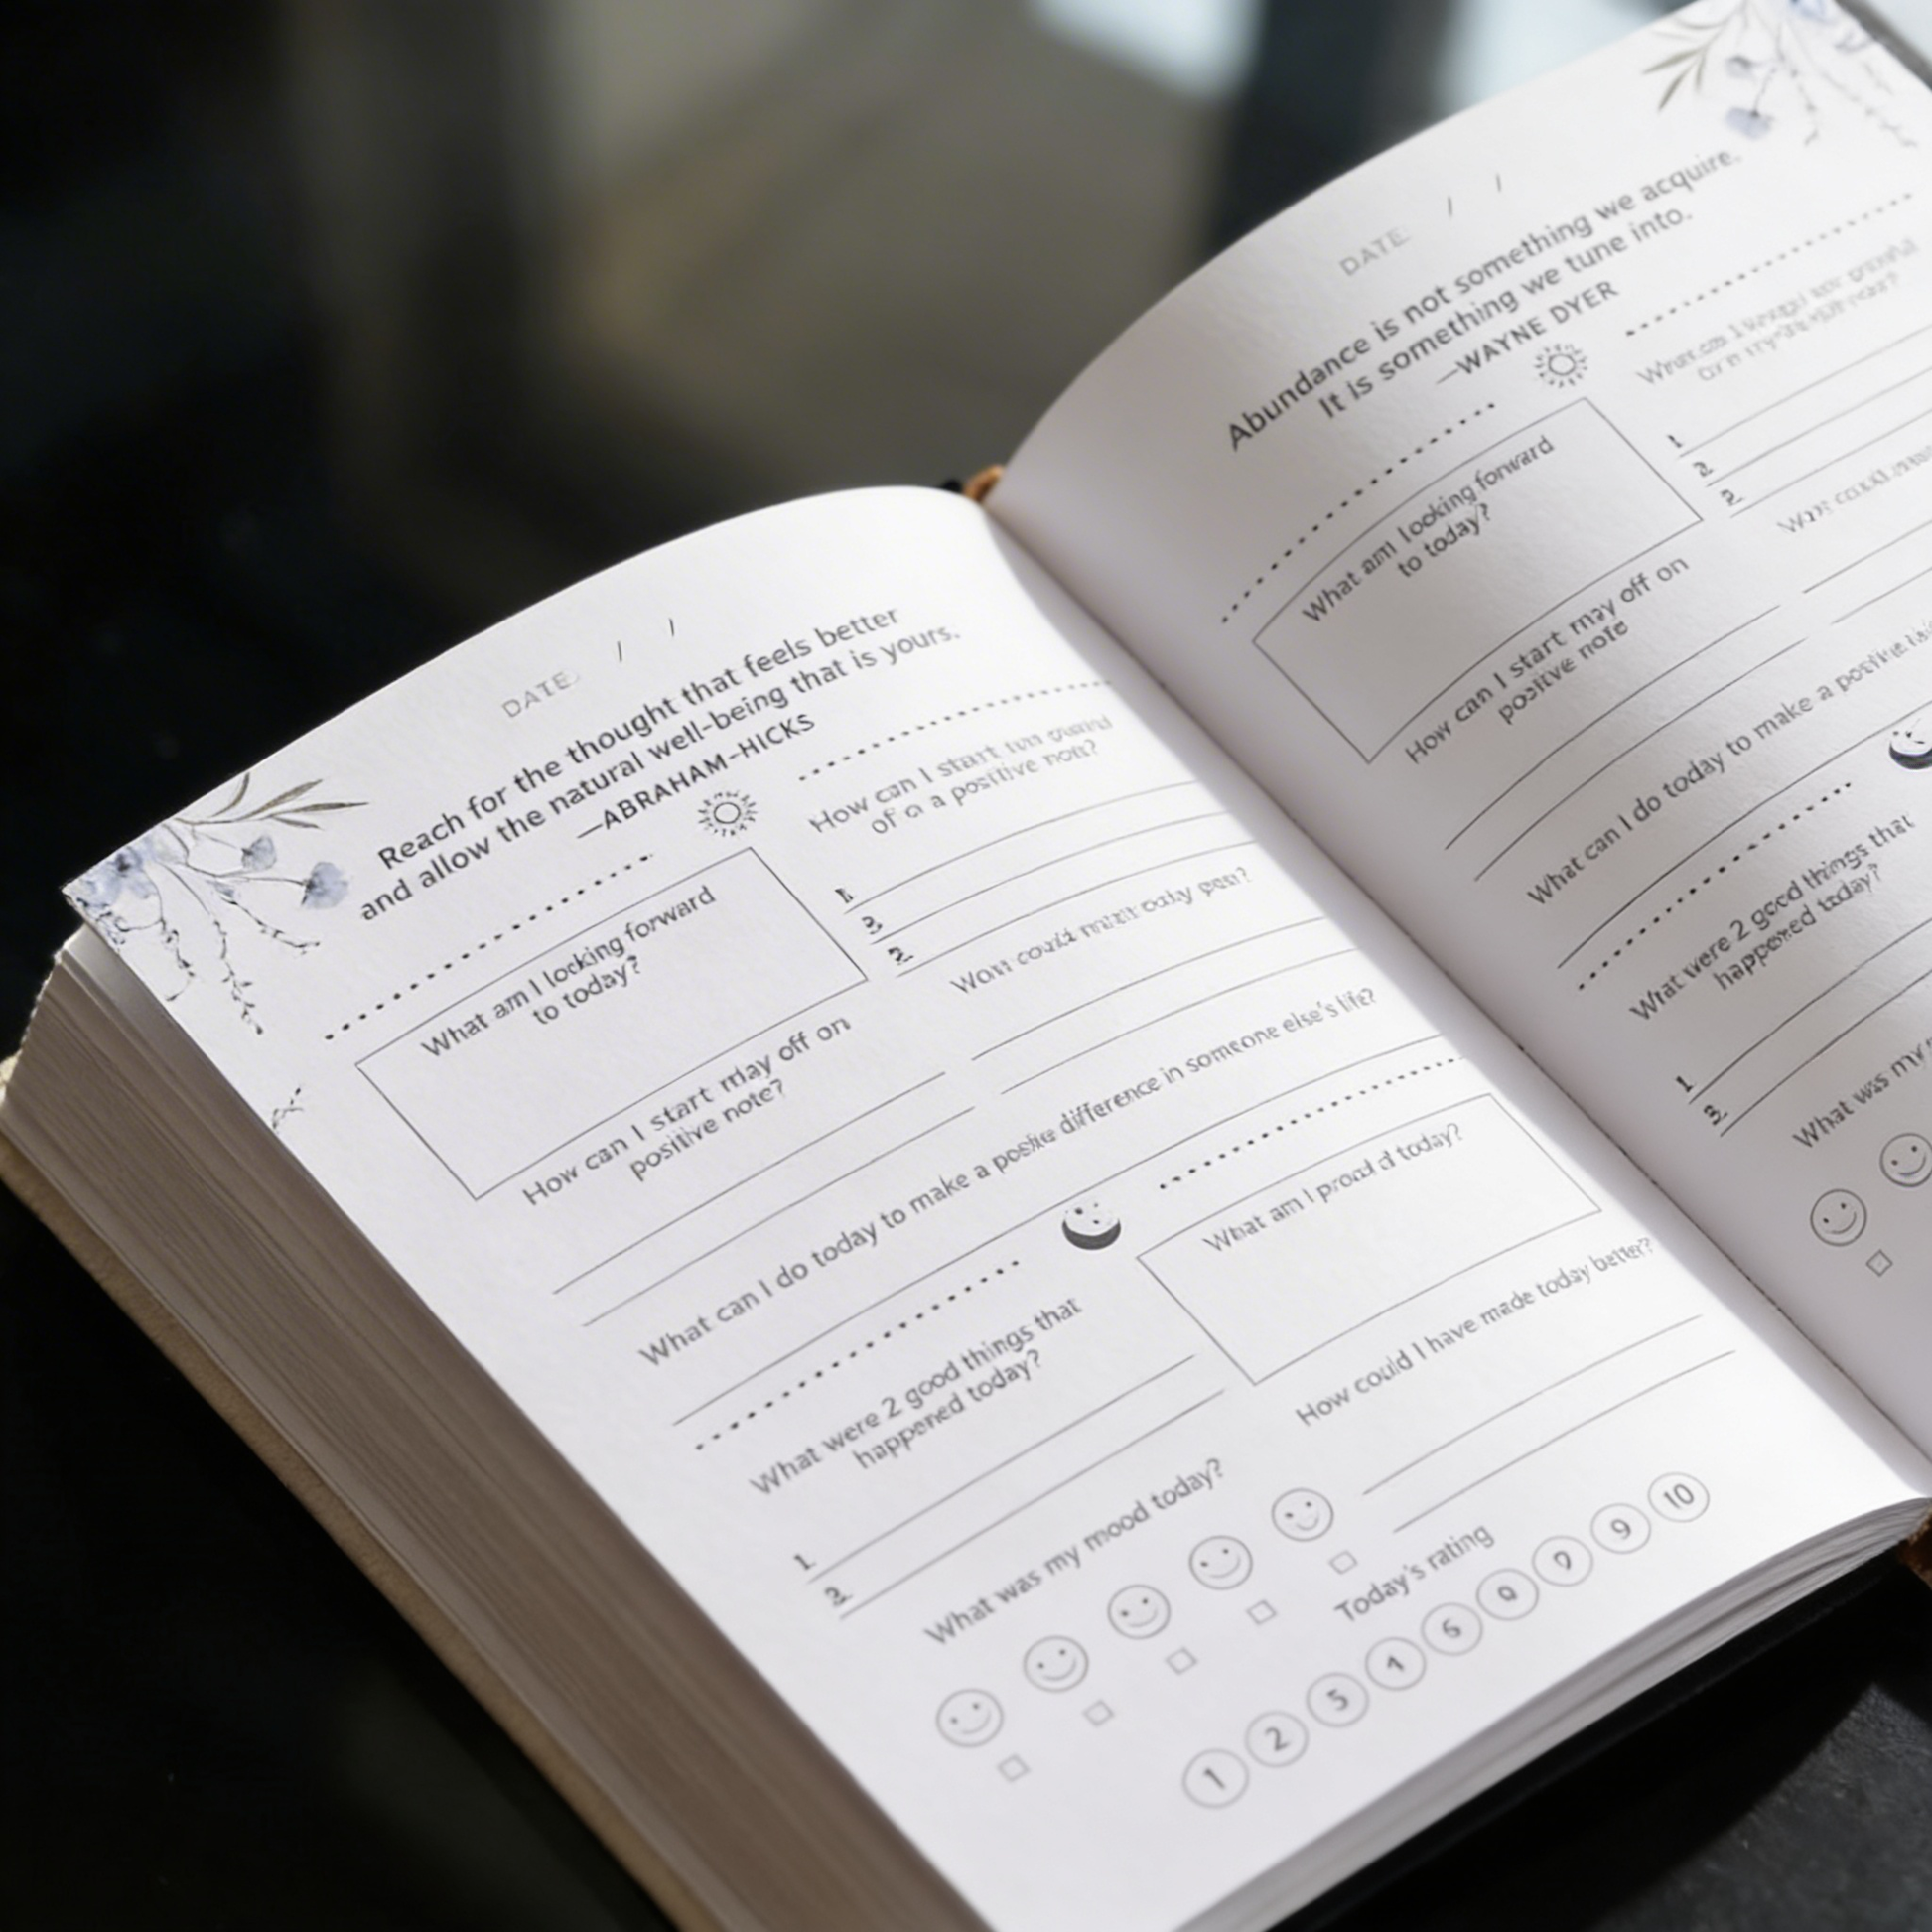 DATE / /
Reach for the thought that feels better
and allow the natural well-being that is yours.
—ABRAHAM-HICKS
What am I looking forward
to today?
How can I start
of a a positive note?
1.
3.
2.
How can I start may off on
positive note?
could
What can I do today to make a positive difference in someone else's life?
What were 2 good things that
happened today?
1.
3.
What am I proud of today?
How could I have made today better?
What was my mood today?
Today's rating
1 2 5 4 6 9 9 9 10
DATE / /
Abundance is not something we acquire.
It is something we tune into.
—WAYNE DYER
What am I looking forward
to today?
1.
2.
2.
How can I start may off on
positive note
What can I do today to make a positive
What were 2 good things that
happened today?
1.
3.
What was my